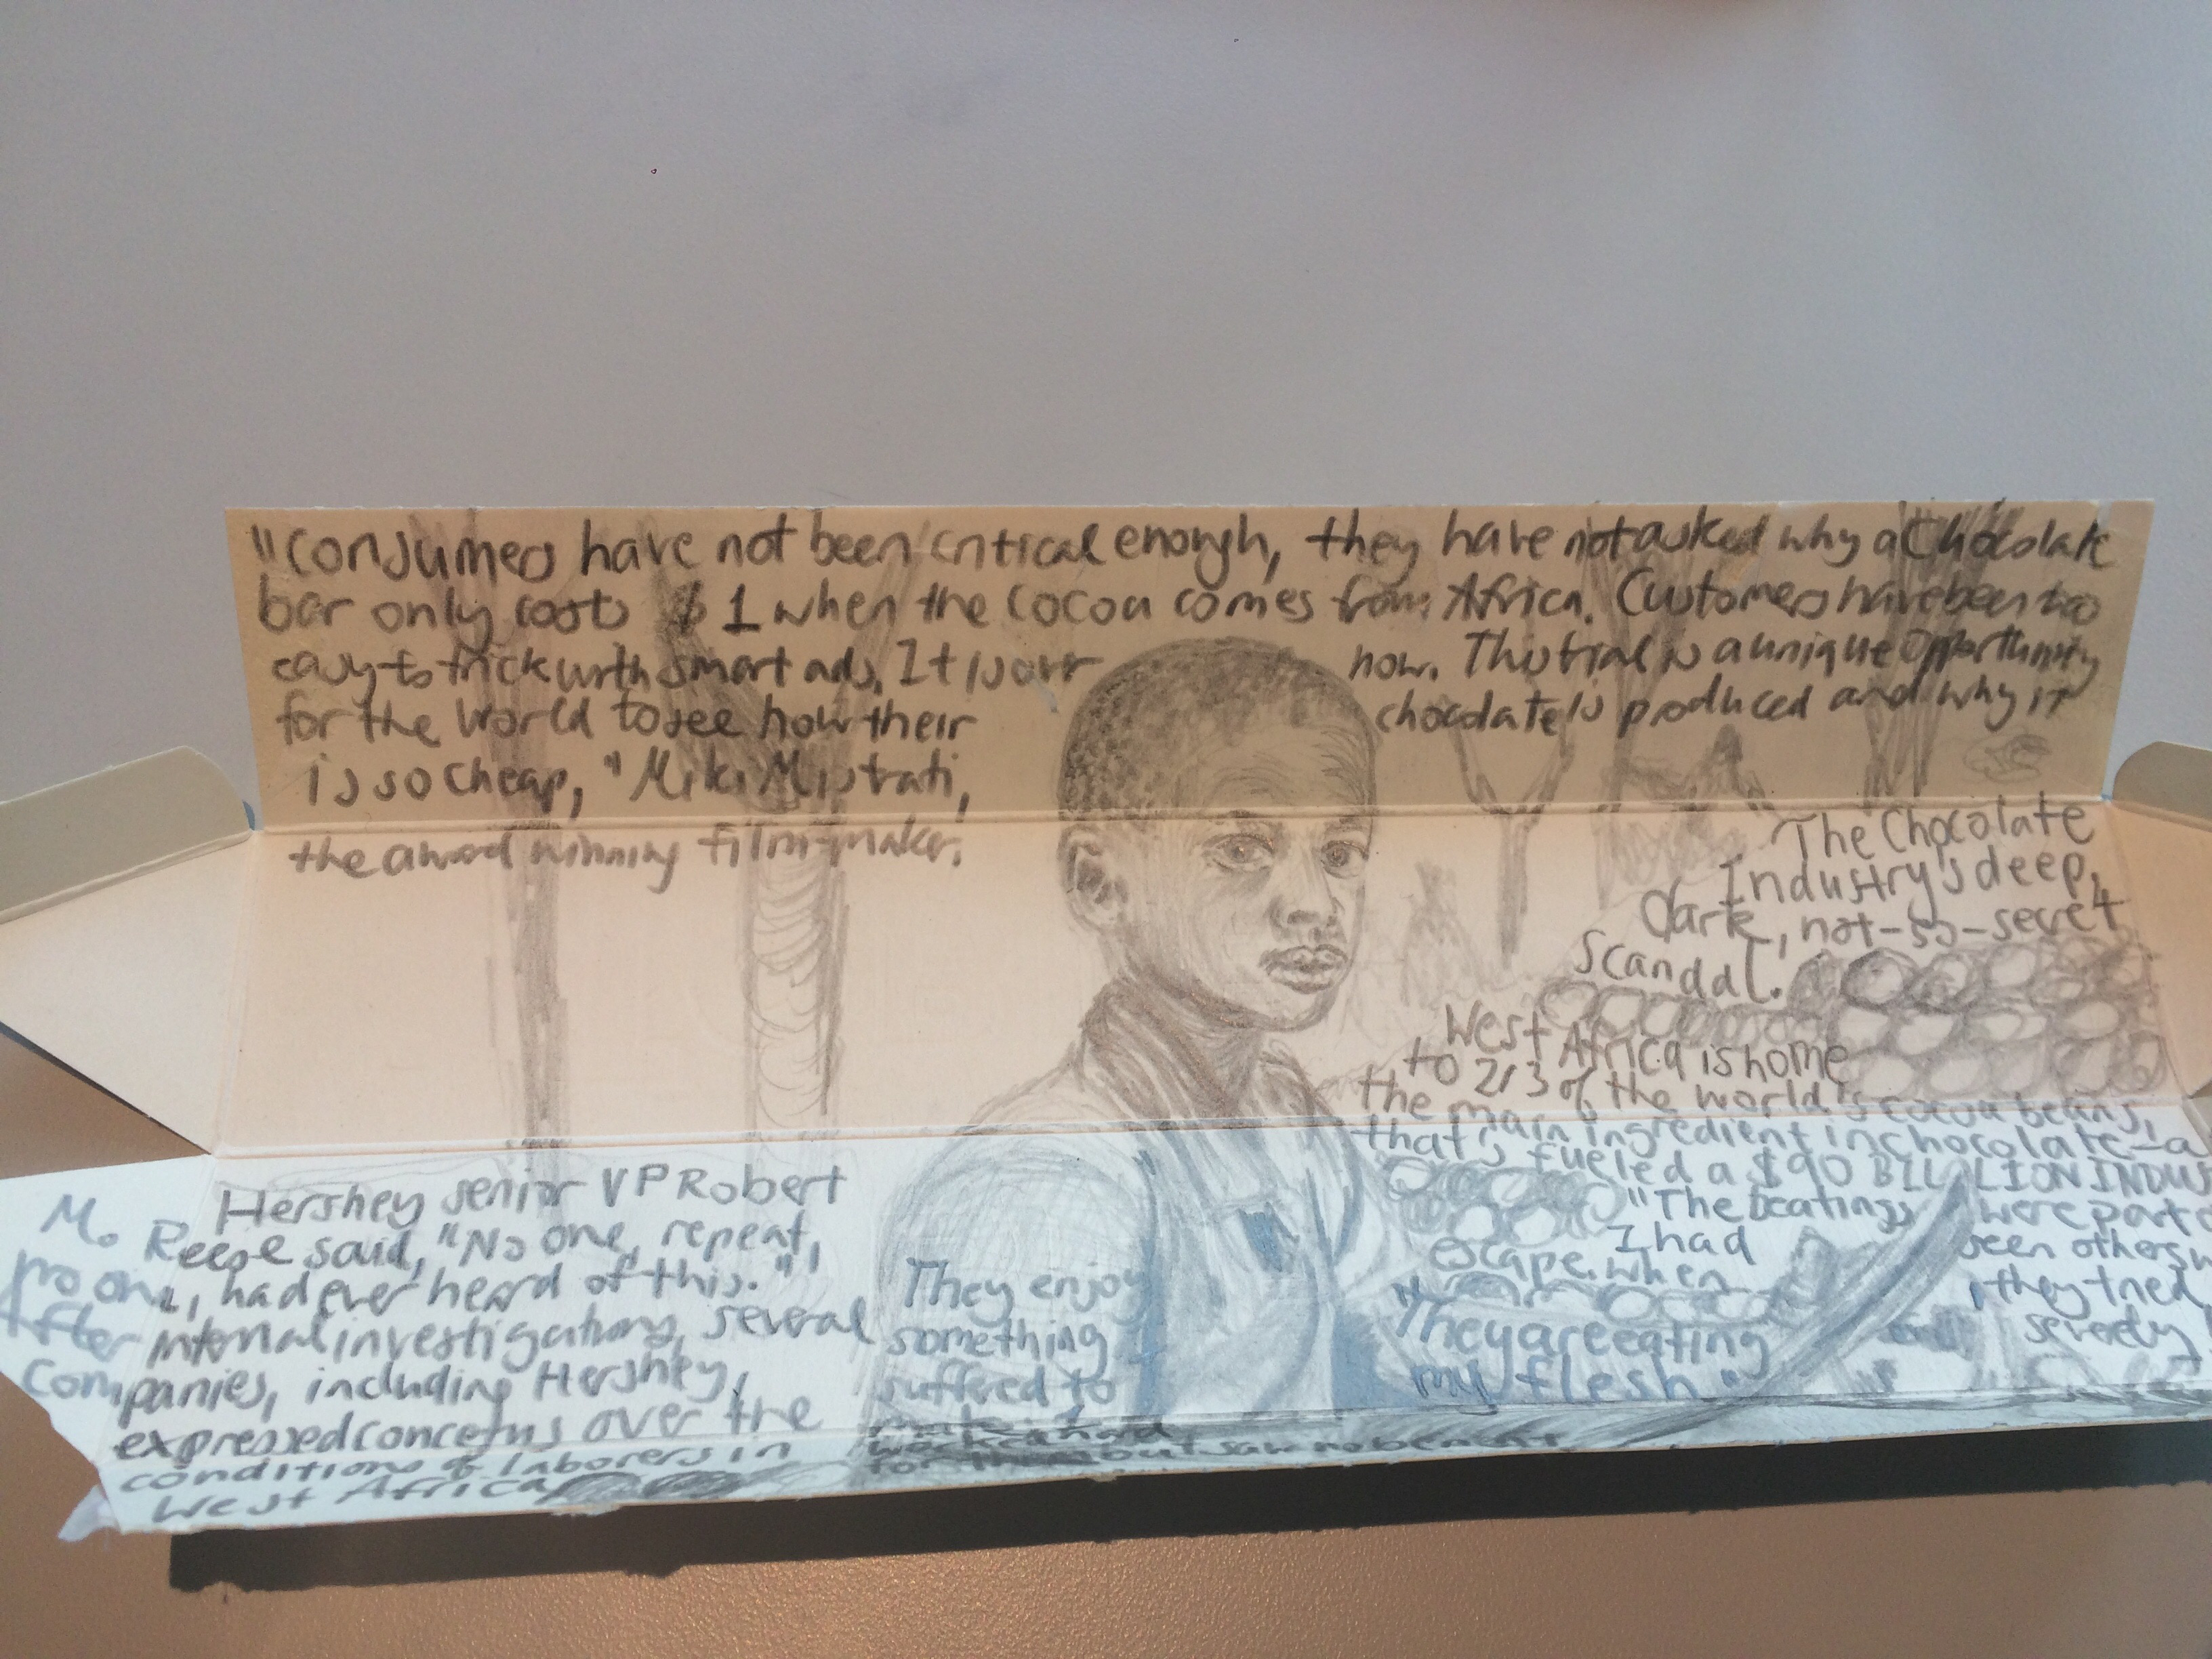 "Consumers have not been critical enough, they have not asked why a Chocolate
bar only costs $1 when the cocoa comes from Africa. Customers have been too
easy to trick with smart ads. It is our
now. This trial is a unique opportunity
for the world to see how their
chocolate is produced and why it
is so cheap, "Miki Mistrati,
the award winning film-maker.
The Chocolate
Industry's deep,
dark, not-so-secret
Scandal.
West Africa is home
to 2/3 of the world's cocoa beans,
the main ingredient in chocolate - a
that's fueled a $90 BILLION
"The beatings were part
I had seen others
escape. when they tried
severely
"They are eating
my flesh."
Hershey senior VP Robert
M. Reese said, "No one, repeat,
no one, had ever heard of this."
After internal investigations, several
Companies, including Hershey,
expressed concerns over the
conditions of laborers in
West Africa
They enjoy
something
suffered to
make. I had
work hard
for them but saw no benefit